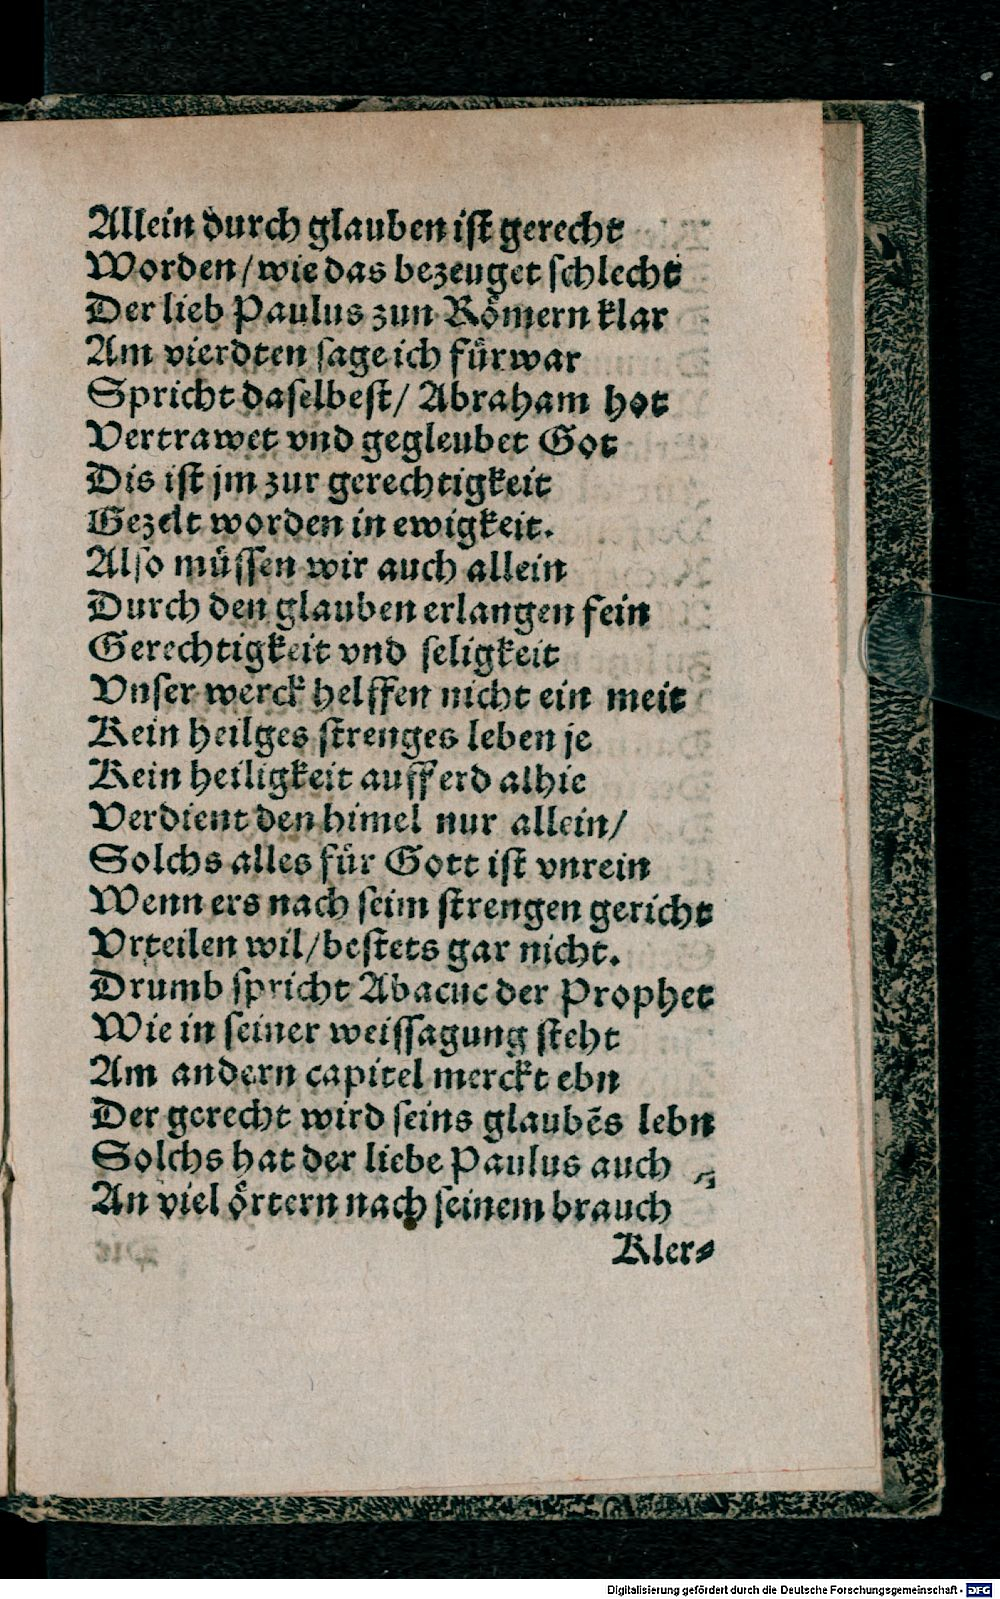 Allein durch glauben ist gerecht
Worden/wie das bezeuget schlecht
Der lieb Paulus zun Römern klar
Am vierdten sage ich fürwar
Spricht daselbest/ Abraham hot
Vertrawet vnd gegleubet Got
Dis ist jm zur gerechtigkeit
Gezelt worden in ewigkeit.
Also müssen wir auch allein
Durch den glauben erlangen fein
Gerechtigkeit vnd seligkeit
Vnser werck helffen nicht ein meit
Kein heilges strenges leben je
Kein heiligkeit auff erd alhie
Verdient den himel nur allein/
Solchs alles für Gott ist vnrein
Wenn ers nach seim strengen gericht
Vrteilen wil/bestets gar nicht.
Drumb spricht Abacuc der Prophet
Wie in seiner weissagung steht
Am andern capitel merckt ebn
Der gerecht wird seins glaubēs lebn
Solchs hat der liebe Paulus auch
An viel örtern nach seinem brauch
Kler⸗
Digitalisierung gefördert durch die Deutsche Forschungsgemeinschaft - DFG